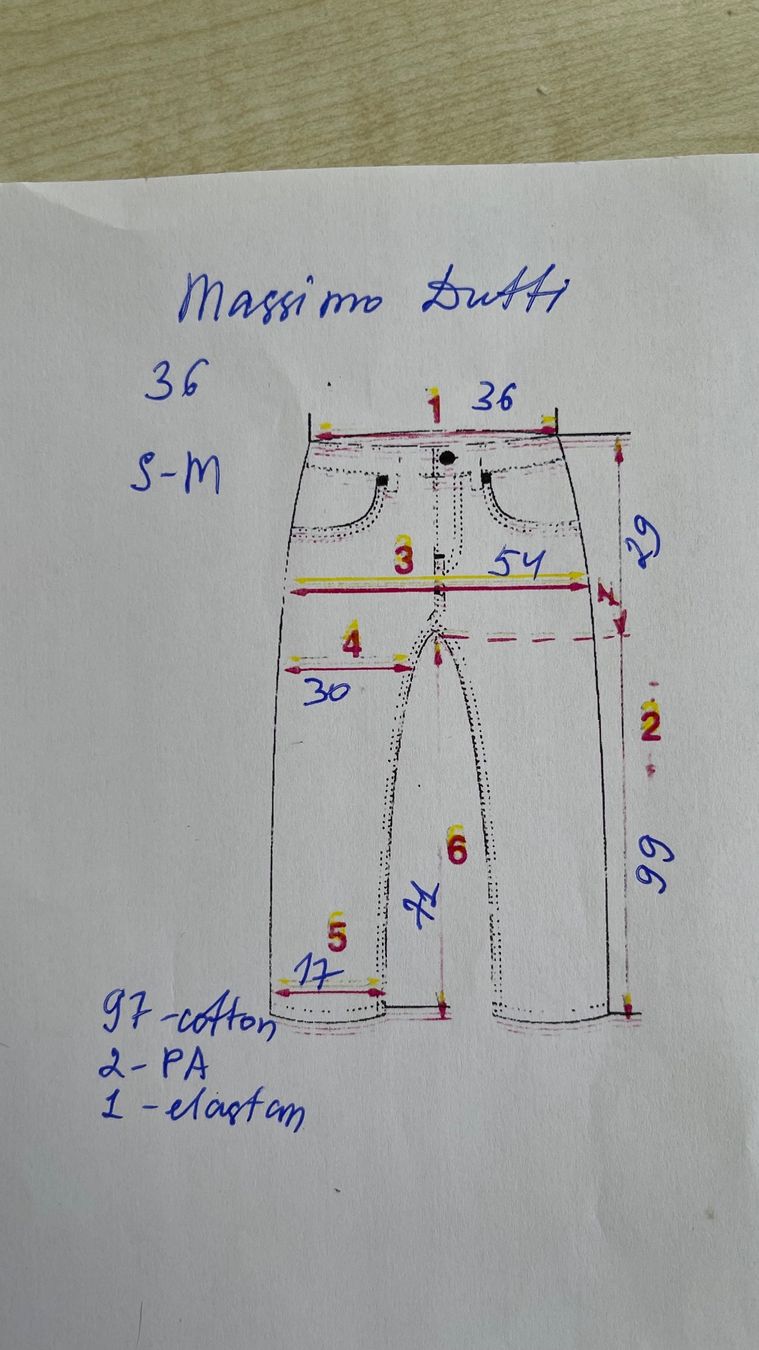 Massimo Dutti
36
1 36
S-M
29
3 54
7
4
30
2
6
99
71
5
17
97-cotton
2-PA
1-elastan